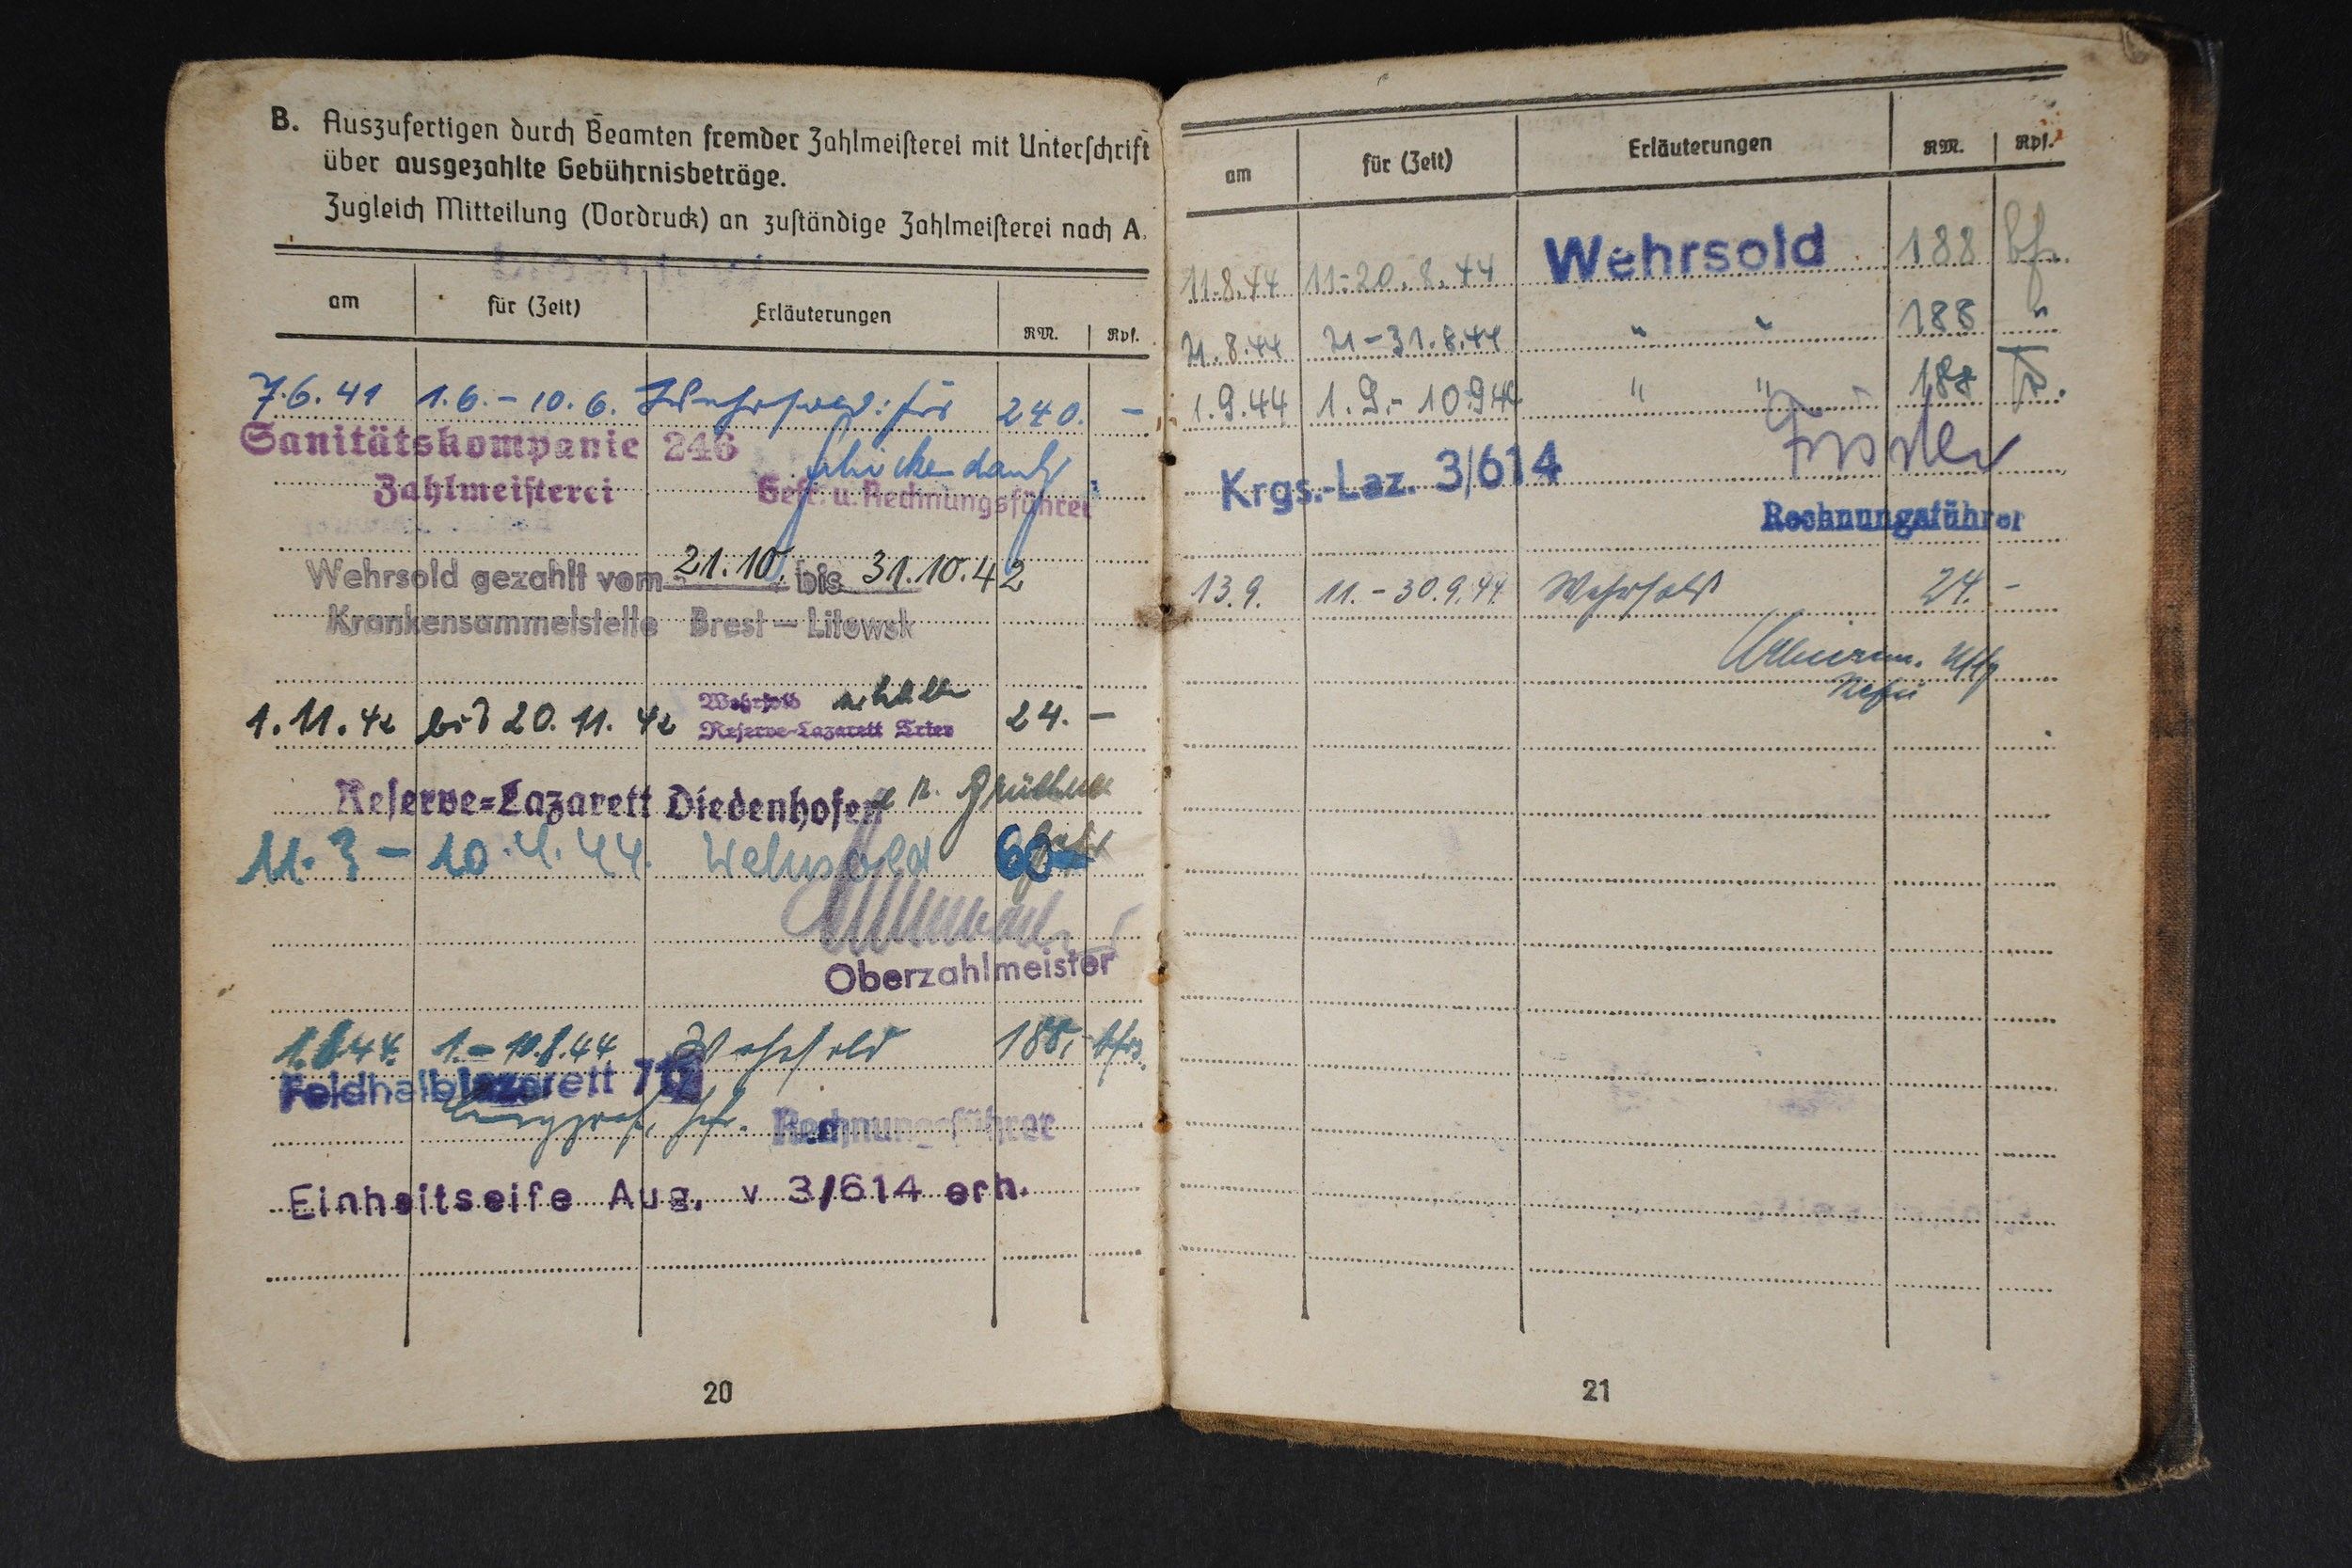 B. Auszufertigen durch Beamten fremder Zahlmeisterei mit Unterschrift
über ausgezahlte Gebührnisbeträge.
Zugleich Mitteilung (Vordruck) an zuständige Zahlmeisterei nach A.
am für (Zeit) Erläuterungen RM. Rpf.
7.6.41 1.6. - 10.6. 240. -
Sanitätskompanie 246
Zahlmeisterei Gefr. u. Rechnungsführer
Wehrsold gezahlt vom 21.10. bis 31.10.42
Krankensammelstelle Brest-Litowsk
Wehrsold erhalten
1.11.42 bis 20.11.42 Reserve-Lazarett Trier 24. -
Reserve-Lazarett Diedenhofen
11.3 - 10.4.44. Wehrsold 60
Oberzahlmeister
1.8.44. 1. - 10.8.44. Wehrsold 188,- bfrs.
Feldhalblazarett
Rechnungsführer
Einheitseife Aug. v 3/614 erh.
20
am für (Zeit) Erläuterungen RM. Rpf.
11.8.44 11.-20.8.44 Wehrsold 188 bfr.
21.8.44 21-31.8.44 " " 188 "
1.9.44 1.9.-10.9.44 " " 188
Krgs.-Laz. 3/614
Rechnungsführer
13.9. 11. - 30.9.44. Wehrsold 24. -
Uffz
21